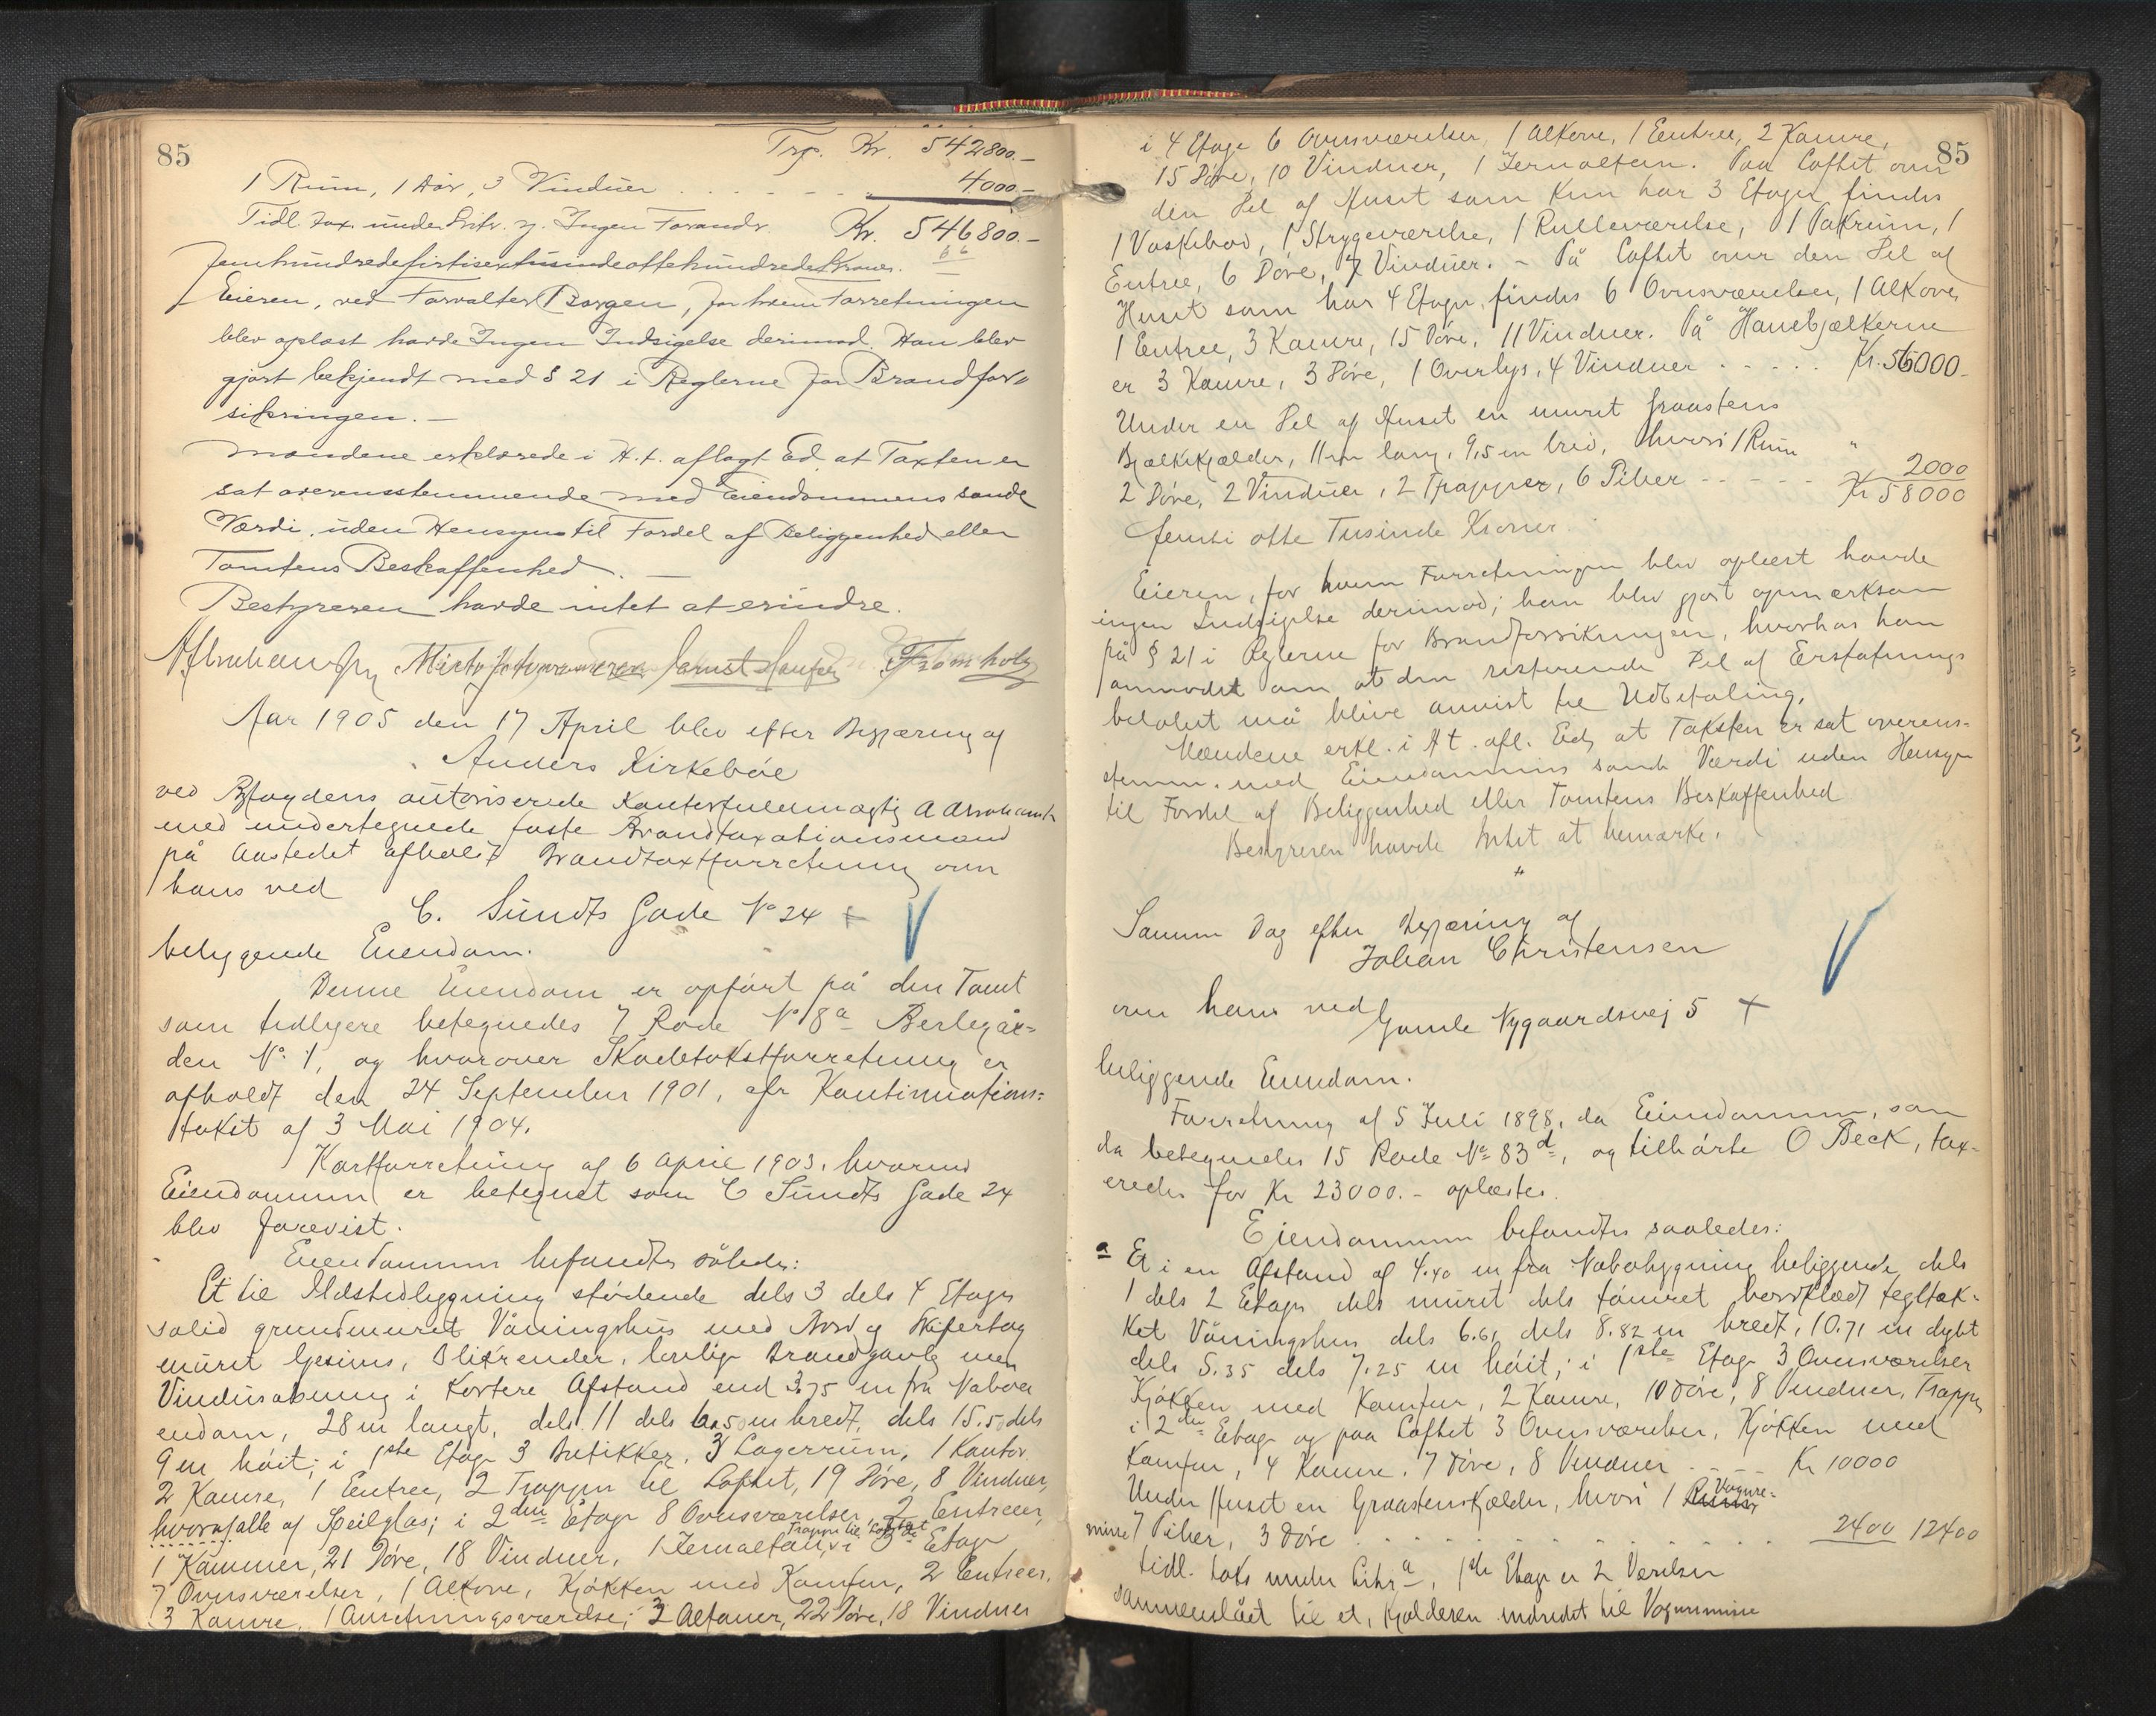 85
Trp. Kr. 542800.-
1 Rum, 1 Dør, 3 Vinduer 4000.-
Tidl. tax. under Litr. y. Ingen Forandr. Kr. 546800.-
Femhundredefirtisextusindeottehundrede Kroner.
Eieren, ved Forvalter Borgen, for hvem Forretningen
blev oplæst havde Ingen Indsigelse derimod. Han blev
gjort bekjendt med § 21 i Reglerne for Brandfor-
sikringen. -
Mændene erklærede i H. t. aflagt Ed, at Taxten er
sat overensstemmende med Eiendommens sande
Værdi, uden Hensyn til Fordel af Beliggenhed eller
Tomtens Beskaffenhed. -
Bestyreren havde intet at erindre.
Fromholz
Aar 1905 den 17 April blev efter Begjæring af
Anders Kirkebøe
ved Byfogdens autoriserede Kontorfuldmægtig A Abrahamsen
med undertegnede faste Brandtaxationsmænd
på Aastedet afholdt Brandtaxtforretning over
hans ved
C. Sundts Gade No 24 +
beliggende Eiendom.
Denne Eiendom er opført på den Tomt
som tidligere betegnedes 7 Rode No 8a Berlegår-
den No 1, og hvorover Skadetakstforretning er
afholdt den 24 September 1901, cfr Kontinuations-
takst af 3 Mai 1904.
Kartforretning af 6 April 1903, hvorved
Eiendommen er betegnet som C Sundts Gade 24
blev forevist.
Eiendommen befandtes således:
Et til Ildstedbygning stødende dels 3 dels 4 Etages
solid grundmuret Våningshus med Bord og Skifertag
muret Gesims, Blikrender, lovlig Brandgavl men
Vinduesåbning i kortere Afstand end 3.75 m fra Naboei-
endom, 28 m langt, dels 11 dels 6.50 m bredt, dels 15.5 dels
9 m høit; i 1ste Etage 3 Butikker, 3 Lagerrum, 1 Kontor
2 Kamre, 1 Entree, 2 Trapper til Loftet, 19 Døre, 8 Vinduer,
hvoraf alle af Speilglas; i 2den Etage 8 Ovnsværelser, 2 Entreer,
1 Kammer, 21 Døre, 18 Vinduer, 1 Jernaltan, Trappe til Loftet i 3de Etage
7 Ovnsværelser, 1 Alkove, Kjøkken med Komfur, 2 Entreer,
3 Kamre, 1 Anretningsværelse; 2 Altaner, 22 Døre, 18 Vinduer
85
i 4 Etage 6 Ovnsværelser, 1 Alkove, 1 Entree, 2 Kamre,
15 Døre, 10 Vinduer, 1 Jernaltan. Paa Loftet over
den Del af Huset som kun har 3 Etager findes
1 Vaskebod, 1 Strygeværelse, 1 Rulleværelse, 1 Pakrum, 1
Entree, 6 Døre, 7 Vinduer. - På Loftet over den Del af
Huset som har 4 Etager findes 6 Ovnsværelser, 1 Alkove,
1 Entree, 3 Kamre, 15 Døre, 11 Vinduer. På Hanebjælkerne
er 3 Kamre, 3 Døre, 1 Overlys, 4 Vinduer Kr. 56000-
Under en Del af Huset en muret Graastens
Bjælkekjælder, 11 m lang, 9,5 m bred, hvori 1 Rum "
2 Døre, 2 Vinduer, 2 Trapper, 6 Piller 2000
Kr 58000
femti otte Tusinde Kroner.
Eieren, for hvem Forretningen blev oplæst havde
ingen Indsigelse derimod; han blev gjort opmærksom
på § 21 i Reglerne for Brandforsikringen, hvorhos han
anmodet om at den resterende Del af Erstatnings
beløbet må blive anvist til Udbetaling.
Mændene erkl. i H t. afl. Ed, at Taksten er sat overens-
stemm. med Eiendommens sande Værdi uden Hensyn
til Fordel af Beliggenhed eller Tomtens Beskaffenhed
Bestyreren havde Intet at bemærke.
"
Samme Dag efter Begjæring af
Johan Christensen
over hans ved
Gamle Nygaardsvej 5 +
beliggende Eiendom.
Forretning af 5 Juli 1898, da Eiendommen, som
da betegnedes 15 Rode No 83d, og tilhørte O Beck, tax-
eredes for Kr 23000.- oplæstes.
Eiendommen befandtes saaledes:
a Et i en Afstand af 4.40 m fra Nabobygning beliggende dels
1 dels 2 Etages dels muret dels tømret bordklædt tegltæk-
ket Våningshus dels 6.61 dels 8.82 m bredt, 10.71 m dybt
dels 5.35 dels 7.25 m høit; i 1ste Etage 3 Ovnsværelser
Kjøkken med Komfur, 2 Kamre, 10 Døre, 8 Vinduer, Trappe
i 2den Etage og paa Loftet 3 Ovnsværelser, Kjøkken med
Komfur, 4 Kamre, 7 Døre, 8 Vinduer Kr 10000
Under Huset en Graastenskjælder, hvori 1 Rum Vogns-
misse 7 Piller, 3 Døre 2400 12400
tidl. taks under Litr a, 1ste Etage er 2 Værelser
sammenslået til et, Kjælderen indredet til Vognmisse